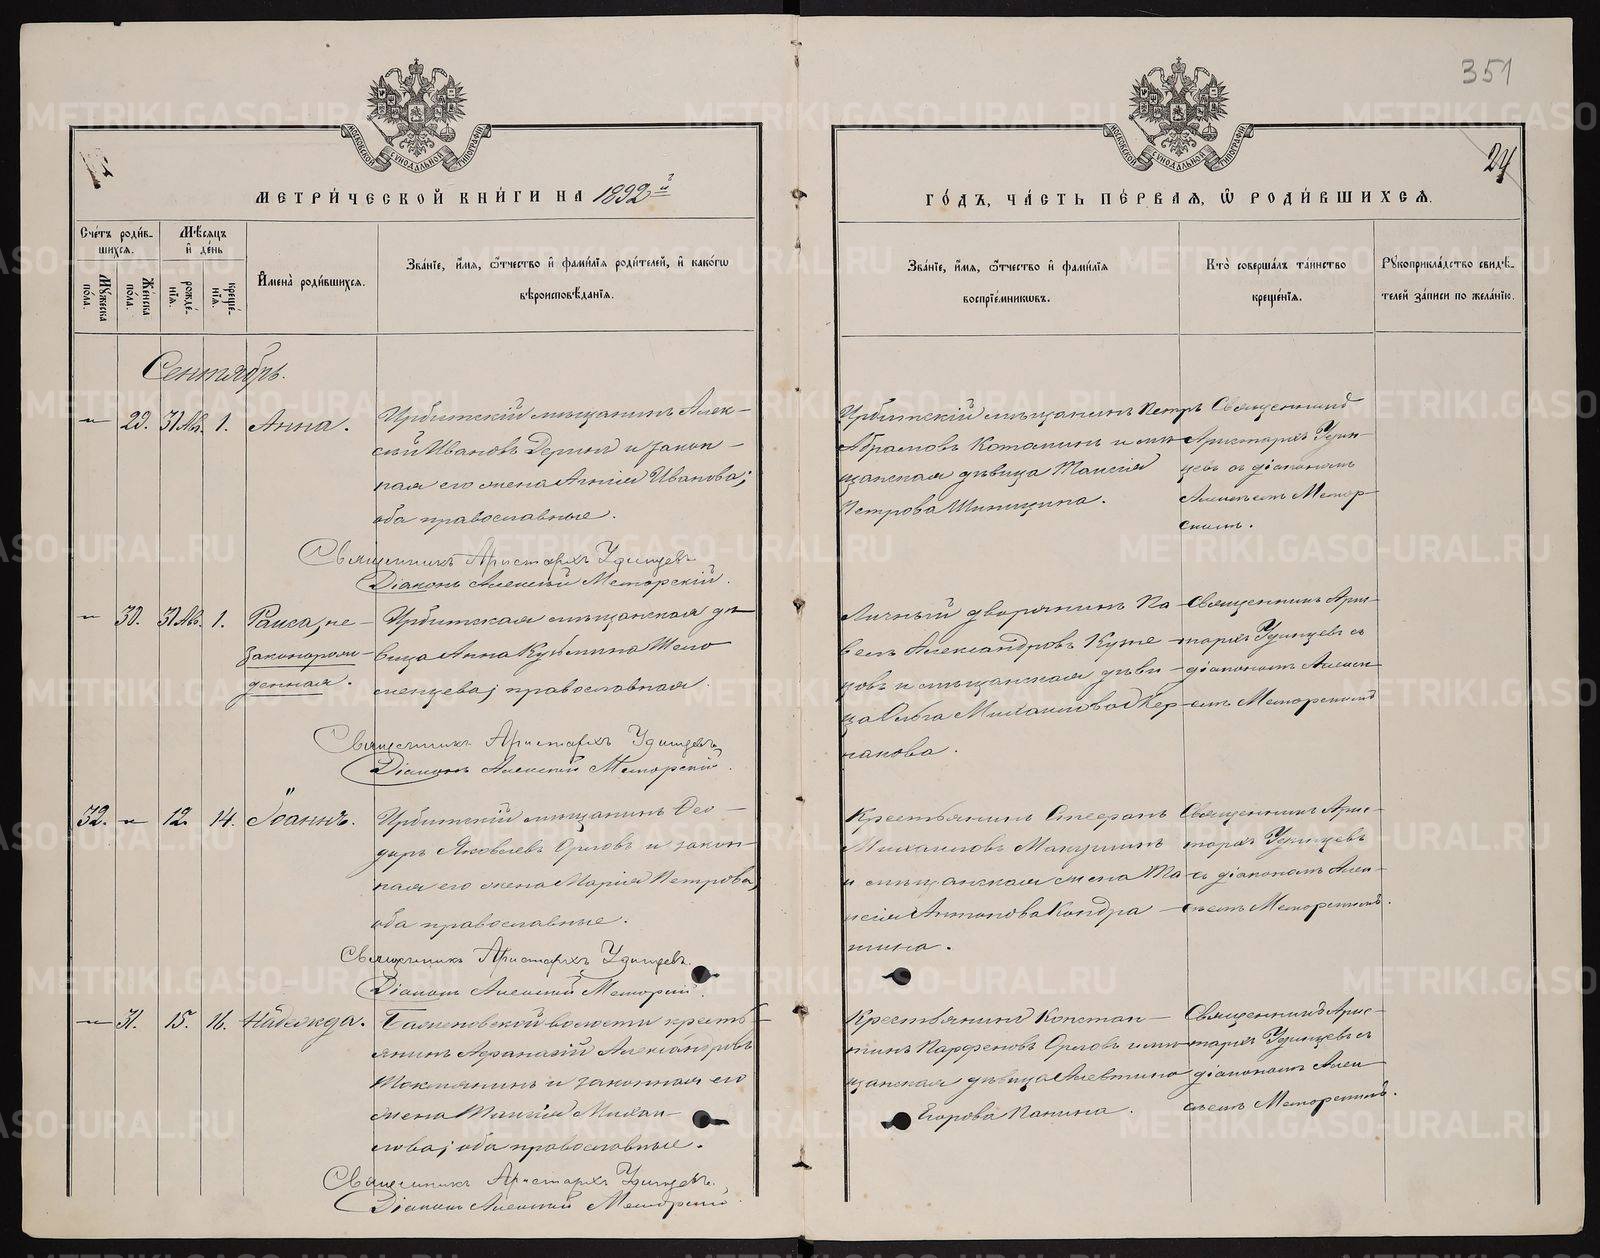 351
24
МЕТРИ́ЧЕСКОЙ КНИ́ГИ НА 1892 й
ГО́ДЪ, ЧА́СТЬ ПЕ́РВАЯ, Ѡ РОДИ́ВШИХСЯ.
Сче́тъ роди́в-
шихся.
Мꙋ́жеска по́ла.
Же́нска по́ла.
Мѣ́сяцъ и де́нь
рожде́-
нїя.
креще́-
нїя.
И҆мена̀ роди́вшихся.
Зва́нїе, и҆́мя, ѻ҆́тчество и҆ фами́лїя роди́телей, и҆ како́гѡ
вѣроисповѣ́данїя.
Зва́нїе, и҆́мя, ѻ҆́тчество и҆ фами́лїя
воспрїе́мникѡвъ.
Кто̀ соверша́лъ та́инство
креще́нїя.
Рꙋкоприкла́дство свидѣ́-
телей за́писи по жела́нїю.
Сентябрь.
„ 29. 31 Ав. 1. Анна.
Ирбитскій мѣщанинъ Алек-
сѣй Ивановъ и закон-
ная его жена Агнія Иванова;
оба православные.
Священникъ Аристархъ Удинцевъ
Діаконъ Алексій Меморскій.
Ирбитскій мѣщанинъ Петръ
Абрамовъ и мѣ-
щанская дѣвица Таисія
Петрова Шипицина.
Священникъ
Аристархъ Удин-
цевъ съ діакономъ
Алексѣемъ Мемор-
скимъ.
„ 30. 31 Ав. 1. Раиса, не-
законорож-
денная.
Ирбитская мѣщанская дѣ-
вица Анна Кузьмина
православная.
Священникъ Аристархъ Удинцевъ
Діаконъ Алексій Меморскій.
Личный дворянинъ Па-
велъ Александровъ Кузне-
цовъ и мѣщанская дѣви-
ца Ольга Михаилова
Священникъ Арис-
тархъ Удинцевъ съ
діакономъ Алексѣ-
емъ Меморскимъ
32. „ 12. 14. Іоаннъ.
Ирбитскій мѣщанинъ Ѳео-
доръ Яковлевъ Орловъ и закон-
ная его жена Марія Петрова,
оба православные.
Священникъ Аристархъ Удинцевъ.
Діаконъ Алексій Меморскій.
Крестьянинъ Стефанъ
Михаиловъ Макушинъ
и мѣщанская жена Та-
исія Антонова Кондра-
тина.
Священникъ Арис-
тархъ Удинцевъ
съ діакономъ Алек-
сѣемъ Меморскимъ.
„ 31. 15. 16. Надежда.
волости кресть-
янинъ Афанасій Александровъ
Токмянинъ и законная его
жена Таисія Михаи-
лова; оба православные.
Священникъ Аристархъ Удинцевъ.
Діаконъ Алексій Меморскій.
Крестьянинъ Констан-
тинъ Парфеновъ Орловъ и мѣ-
щанская дѣвица Алевтина
Егорова Панина.
Священникъ Арис-
тархъ Удинцевъ съ
діакономъ Алек-
сѣемъ Меморскимъ.
METRIKI.GASO-URAL.RU